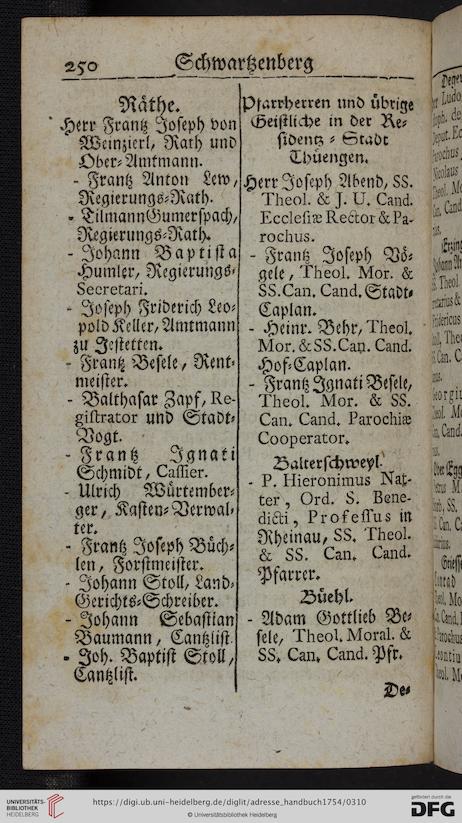 250 Schwartzenberg
Räthe.
Herr Frantz Joseph von
Weinzierl, Rath und
Ober-Amtmann.
- Frantz Anton Lew,
Regierungs-Rath.
- Tilmann Gumerspach,
Regierungs-Rath.
- Johann Baptista
Humler, Regierungs-
Secretari.
- Joseph Friderich Leo-
pold Keller, Amtmann
zu Jestetten.
- Frantz Besele, Rent-
meister.
- Balthasar Zapf, Re-
gistrator und Stadt-
Vogt.
- Frantz Ignati
Schmidt, Cassier.
- Ulrich Würtember-
ger, Kasten-Verwal-
ter.
- Frantz Joseph Büch-
len, Forstmeister.
- Johann Stoll, Land-
Gerichts-Schreiber.
- Johann Sebastian
Baumann, Cantzlist.
- Joh. Baptist Stoll,
Cantzlist.
Pfarrherren und übrige
Geistliche in der Re-
sidentz-Stadt
Thüengen.
Herr Joseph Abend, SS.
Theol. & J. U. Cand.
Ecclesiæ Rector & Pa-
rochus.
- Frantz Joseph Vö-
gele, Theol. Mor. &
SS. Can. Cand. Stadt-
Caplan.
- Heinr. Behr, Theol.
Mor. & SS. Can. Cand.
Hof-Caplan.
- Frantz Ignati Besele,
Theol. Mor. & SS.
Can. Cand. Parochiæ
Cooperator.
Balterschweyl.
- P. Hieronimus Nat-
ter, Ord. S. Bene-
dicti, Professus in
Rheinau, SS. Theol.
& SS. Can. Cand.
Pfarrer.
Büehl.
- Adam Gottlieb Be-
sele, Theol. Moral. &
SS. Can. Cand. Pfr.
De-
UNIVERSITÄTS-
BIBLIOTHEK
HEIDELBERG
https://digi.ub.uni-heidelberg.de/diglit/adresse_handbuch1754/0310
© Universitätsbibliothek Heidelberg
gefördert durch die
DFG